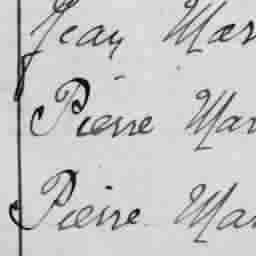 Jean Mar
Pierre Mar
Pierre Mar